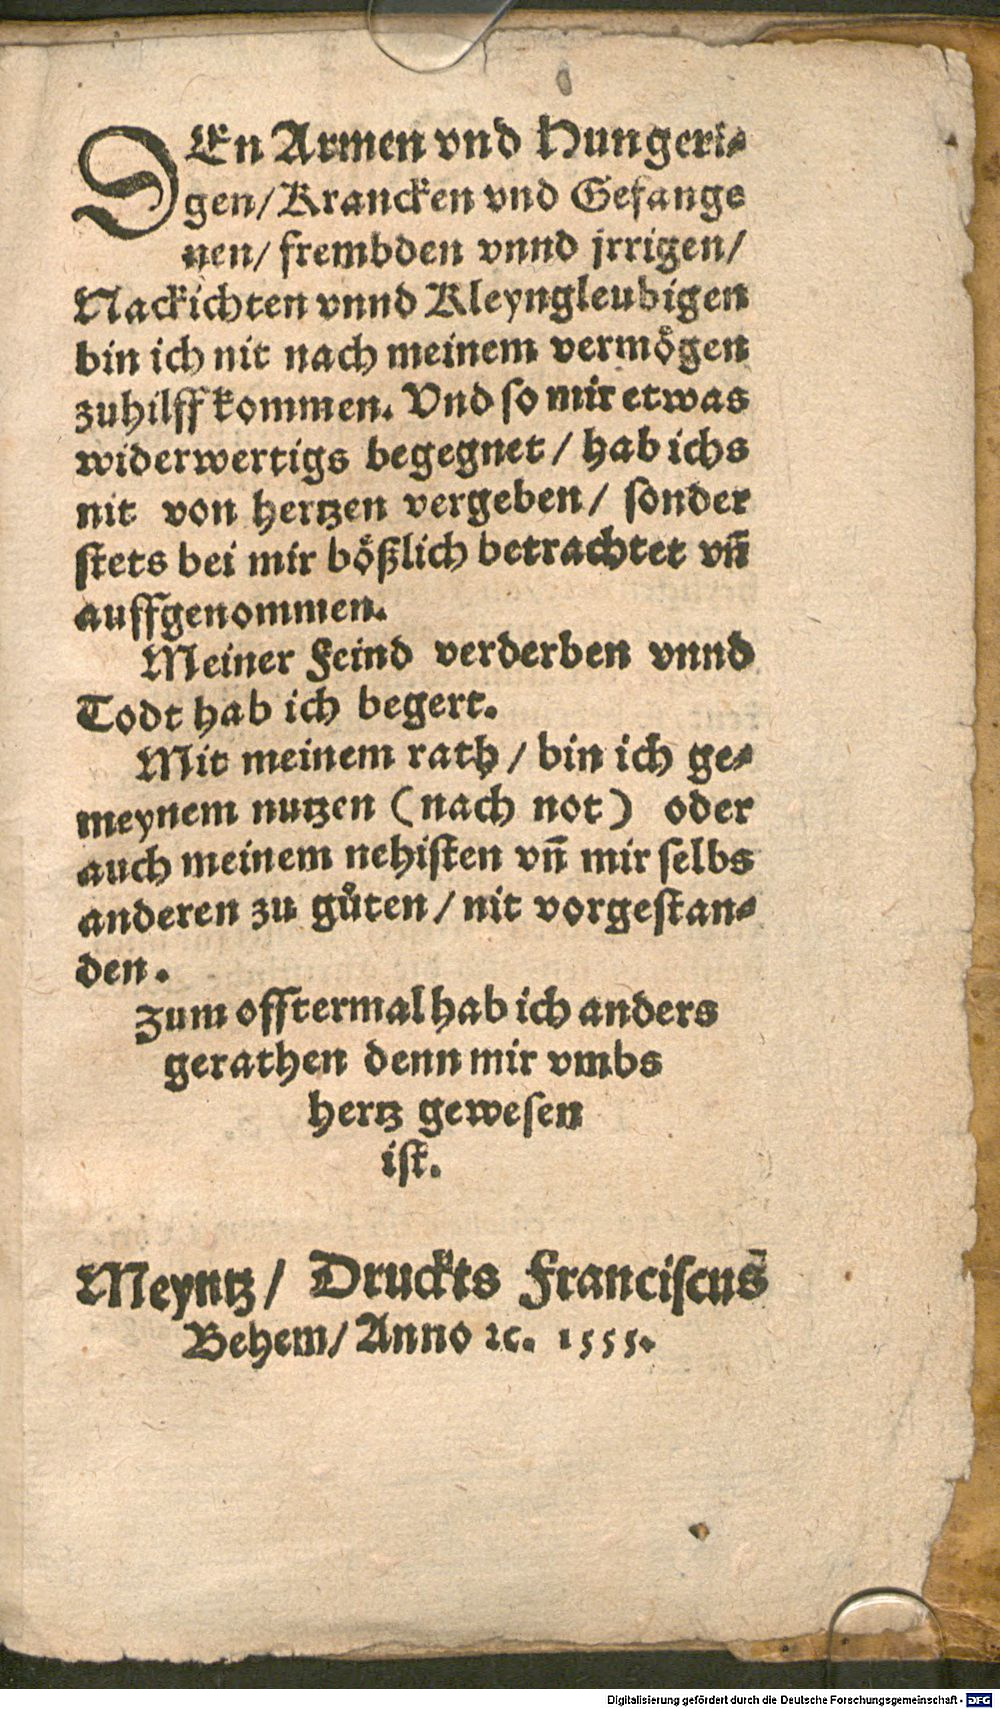 DEn Armen vnd Hungeri-
gen/ Krancken vnd Gefange
nen/ frembden vnnd jrrigen/
Nackichten vnnd Kleyngleubigen
bin ich nit nach meinem vermögen
zuhilff kommen. Vnd so mir etwas
widerwertigs begegnet/ hab ichs
nit von hertzen vergeben/ sonder
stets bei mir bößlich betrachtet vñ
auffgenommen.
Meiner Feind verderben vnnd
Todt hab ich begert.
Mit meinem rath/ bin ich ge-
meynem nutzen (nach not) oder
auch meinem nehisten vñ mir selbs
anderen zu gůten/ nit vorgestan-
den.
Zum offtermal hab ich anders
gerathen denn mir vmbs
hertz gewesen
ist.
Meyntz/ Druckts Franciscus
Behem/ Anno ꝛc. 1555.
Digitalisierung gefördert durch die Deutsche Forschungsgemeinschaft - DFG